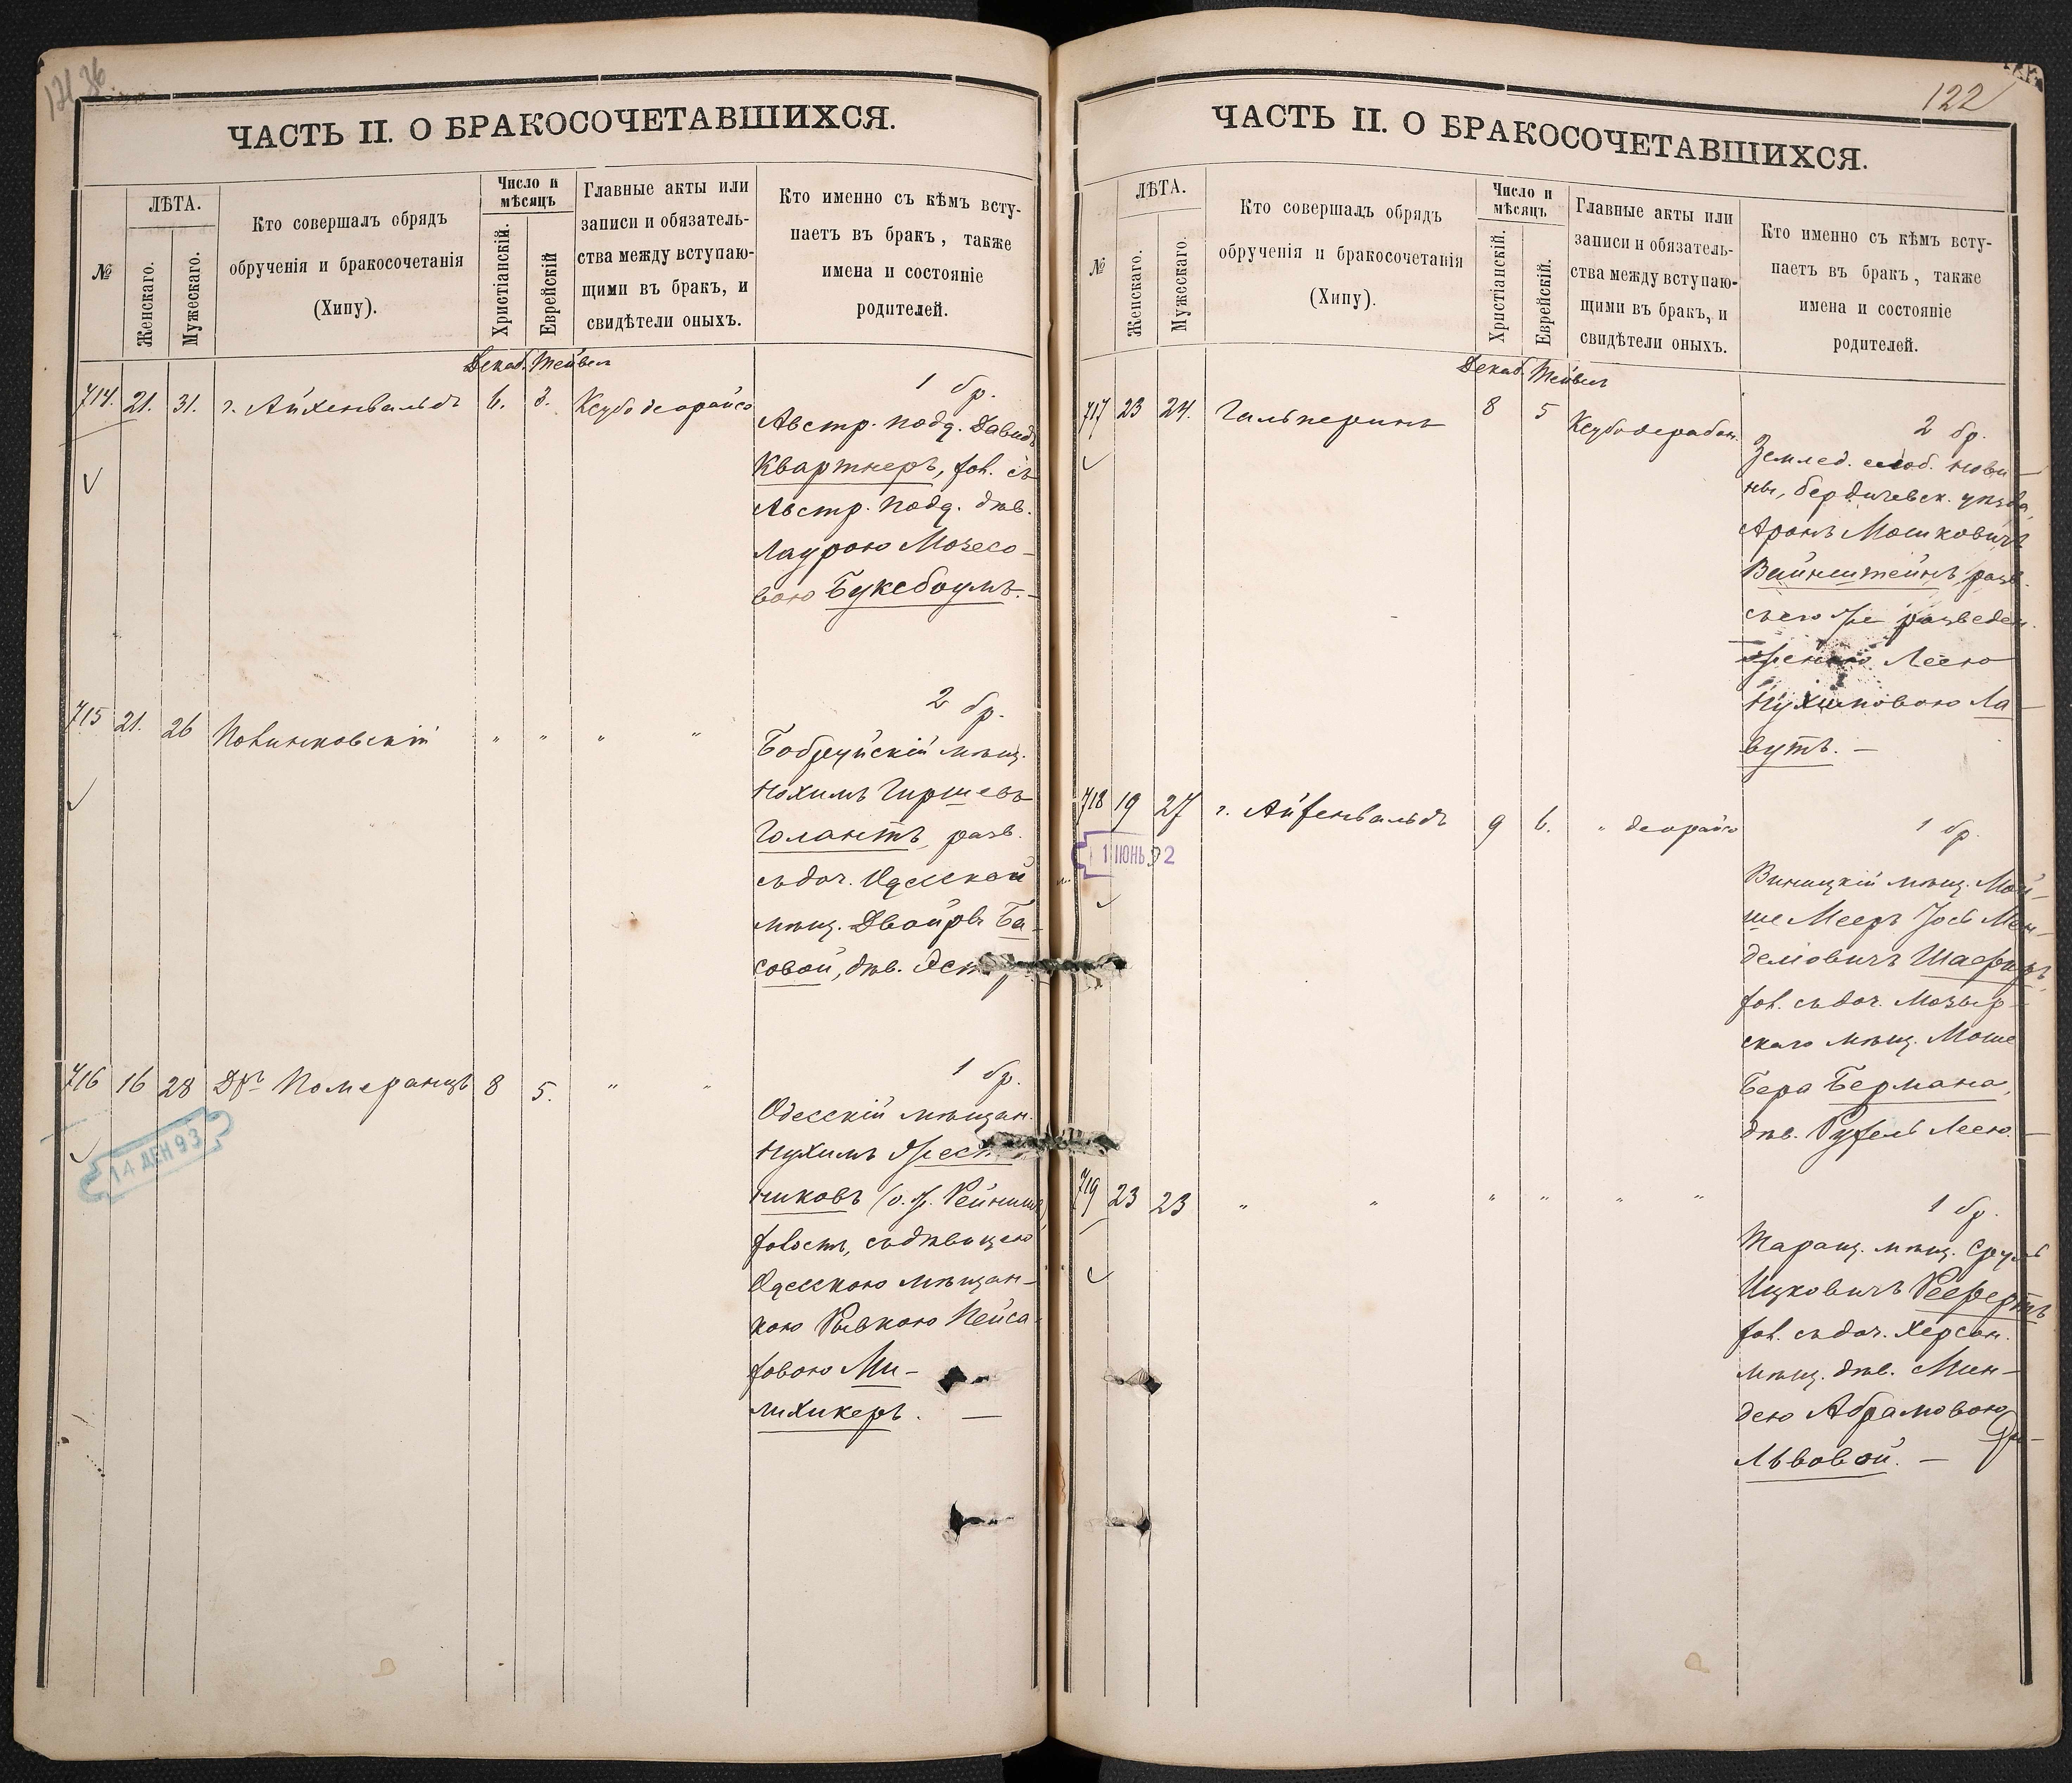 ЧАСТЬ II. О БРАКОСОЧЕТАВШИХСЯ.
№
ЛѢТА.
Женскаго.
Мужескаго.
Кто совершалъ обрядъ
обрученія и бракосочетанія
(Хипу).
Число и
мѣсяцъ
Христіанскій.
Еврейскій
Главные акты или
записи и обязатель-
ства между вступаю-
щими въ бракъ, и
свидѣтели оныхъ.
Кто именно съ кѣмъ всту-
паетъ въ бракъ, также
имена и состояніе
родителей.
Декаб. Тейвет
714. 21. 31. г. Айхенвальдъ 6. 3. Ксубо деорайсо
1 бр.
Австр. подд. Давидъ
Квартнеръ, хол. съ
Австр. подд. дѣв.
Лаурою Мозесо-
вою Буксбаумъ.-
715 21. 26 " " " "
2 бр.
Бобруйскій мѣщ.
Нохимъ Гиршевъ
Голантъ, разв.
съ доч. Одесской
мѣщ. Двойры Ба-
совой, дѣв.
716 16 28 Др. Померанцъ 8 5. " "
1 бр.
Одесскій мѣщан.
Нухимъ
никовъ (о. ж.
холост., съ дѣвицею
Одесскою мѣщан-
кою Рывкою Пейса-
ховою Ми-
лихикеръ. —
14 ДЕН 93
122
ЧАСТЬ II. О БРАКОСОЧЕТАВШИХСЯ.
№
ЛѢТА.
Женскаго.
Мужескаго.
Кто совершалъ обрядъ
обрученія и бракосочетанія
(Хипу).
Число и
мѣсяцъ
Христіанскій.
Еврейскій.
Главные акты или
записи и обязатель-
ства между вступаю-
щими въ бракъ, и
свидѣтели оныхъ.
Кто именно съ кѣмъ всту-
паетъ въ бракъ, также
имена и состояніе
родителей.
Декаб. Тейвет
717 23 24. Гальперинъ 8 5 Ксубо дерабон.
2 бр.
Землед. слоб. Нови-
ны, бердичевск. уѣзда,
Аронъ Мошковичъ
Вайнштейнъ, разв.
съ его же разведен.
женою Леею
Нухимовою Ла-
вутъ. —
718 19 27 г. Айхенвальдъ 9 6. " деорайсо
1 ИЮНЬ 92
1 бр.
Виницкій мѣщ. Мой-
ше Мееръ Іось Мен-
делiовичъ Шафиръ,
хол. съ доч. Мозыр-
скаго мѣщ. Моше
Бера Бермана,
дѣв. Рухель Леею.
719 23 23 " " " " " "
1 бр.
Таращ. мѣщ. Сруль
Ицковичъ Рефертъ
хол. съ доч. Херсон.
мѣщ. дѣв. Мин-
дею Абрамовою
Львовой. —